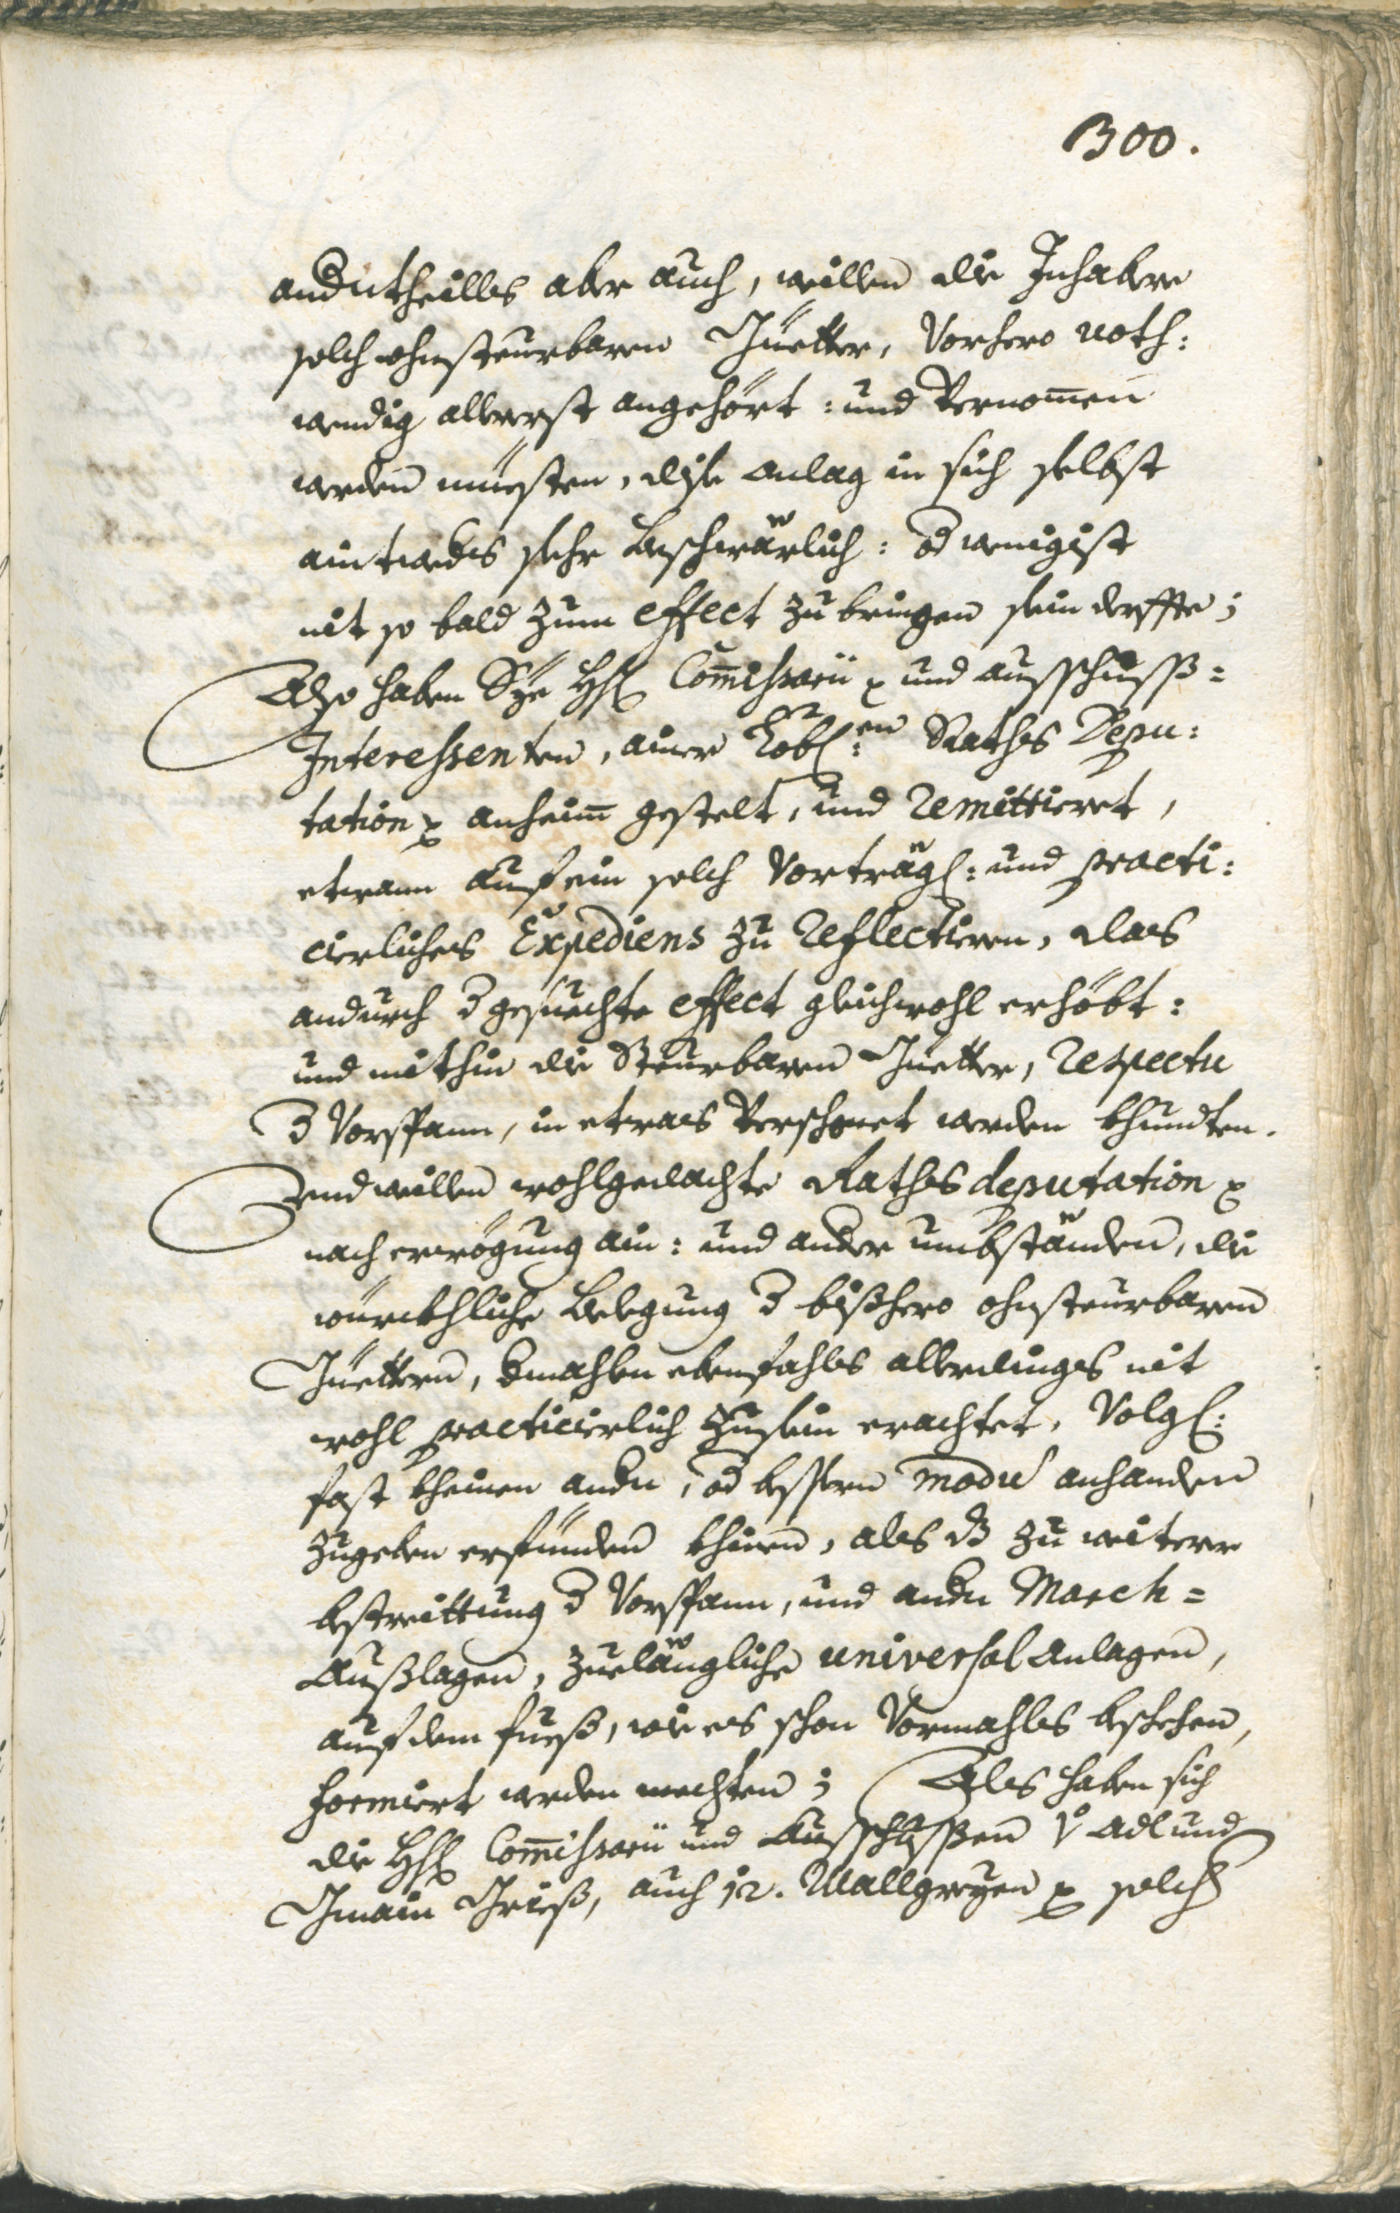 300.
anderntheills aber auch, weillen die Inhabere
solch ohnsteurbaren Güetter, vorhero noth:
wendig allererst angehört: und vernom̅en
werden müesten, dise anlag in sich selbst
aintweders sehr beschwärlich: od wenigist
nit so bald zum effect zu bringen sein derffte;
Also haben Sye HH Com̅issarii p und ausschuss=
Interessenten, ainer Löbl:en Raths Depu:
tation p anheim̅ gestelt, und remittieret,
etwann auf ein solch vorträgl: und practi:
cierliches Expediens zu reflectieren, das
andurch d gesuechte effect gleichwohl erhöbt:
und mithin die Steurbaren Güetter, respectu
d Vorspann, in etwas verschonet werden khundten.
Und weillen wohlgedachte Raths deputation p
nach erwögung ain: und anderer umbständen, die
würckhliche belegung d bißhero ohnsteurbaren
Güettern, dermahlen ebenfahls allerdings nit
wohl practicierlich zu sein erachtet, volgl:
fast kheinen andern, od bessern modu̅ anhanden
zugeben erfünden khinen, als dz zu weiterer
bestreittung d Vorspann, und andern March=
Außlagen, zuelängliche universal anlagen,
auf dem fueß, wie es schon vormahls beschehen,
formiert werden mechten; Als haben sich
die HH Com̅issarii und Ausschüssen v: Adl und
Gmain Grieß, auch 12. Mallgreyen p solch